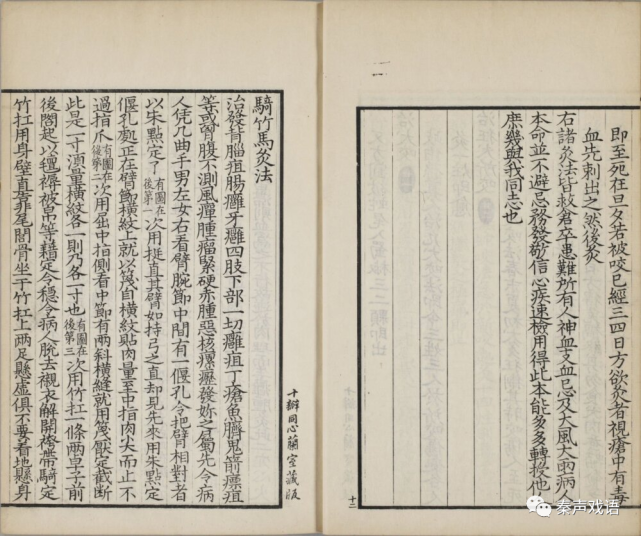 即至死在旦夕若被咬已經三四日方欲灸者視瘡中有毒
血先刺出之然後灸
右諸灸法皆救倉卒患難所有人神血支血忌及大風大雨病人
本命並不避忌務發敬信心疾速檢用得此本能多多轉授他
庶幾與我同志也
十二
十瓣同心蘭室藏版
騎竹馬灸法
治發背腦疽腸癰牙癰四肢下部一切癰疽丁瘡魚臍鬼箭瘭疽
等或胷腹不測風癉腫瘤緊硬赤腫惡核瘰癧發妳之屬先令病
人凭几曲手男左女右看臂腕節中間有一偃孔令把臂相對者
以朱點定了有圖在後第一次用挺直其臂如持弓之直却見先來用朱點定
偃孔處正在臂節橫紋上就以篾自橫紋貼肉量至中指肉尖而止不
過指爪有圖在後第二次用屈中指側看中節有兩斜橫縫就用篾壓定截斷
此是一寸須量橫紋各一則乃各一寸也有圖在後第三次用竹扛一條兩早子前
後閣起以氊褥被帛等藉定令穩令病人脫去襯衣解開袴帶騎定
竹扛用身壁直靠尾閭骨坐于竹扛上兩足懸虛俱不要着地懸身
秦声戏语